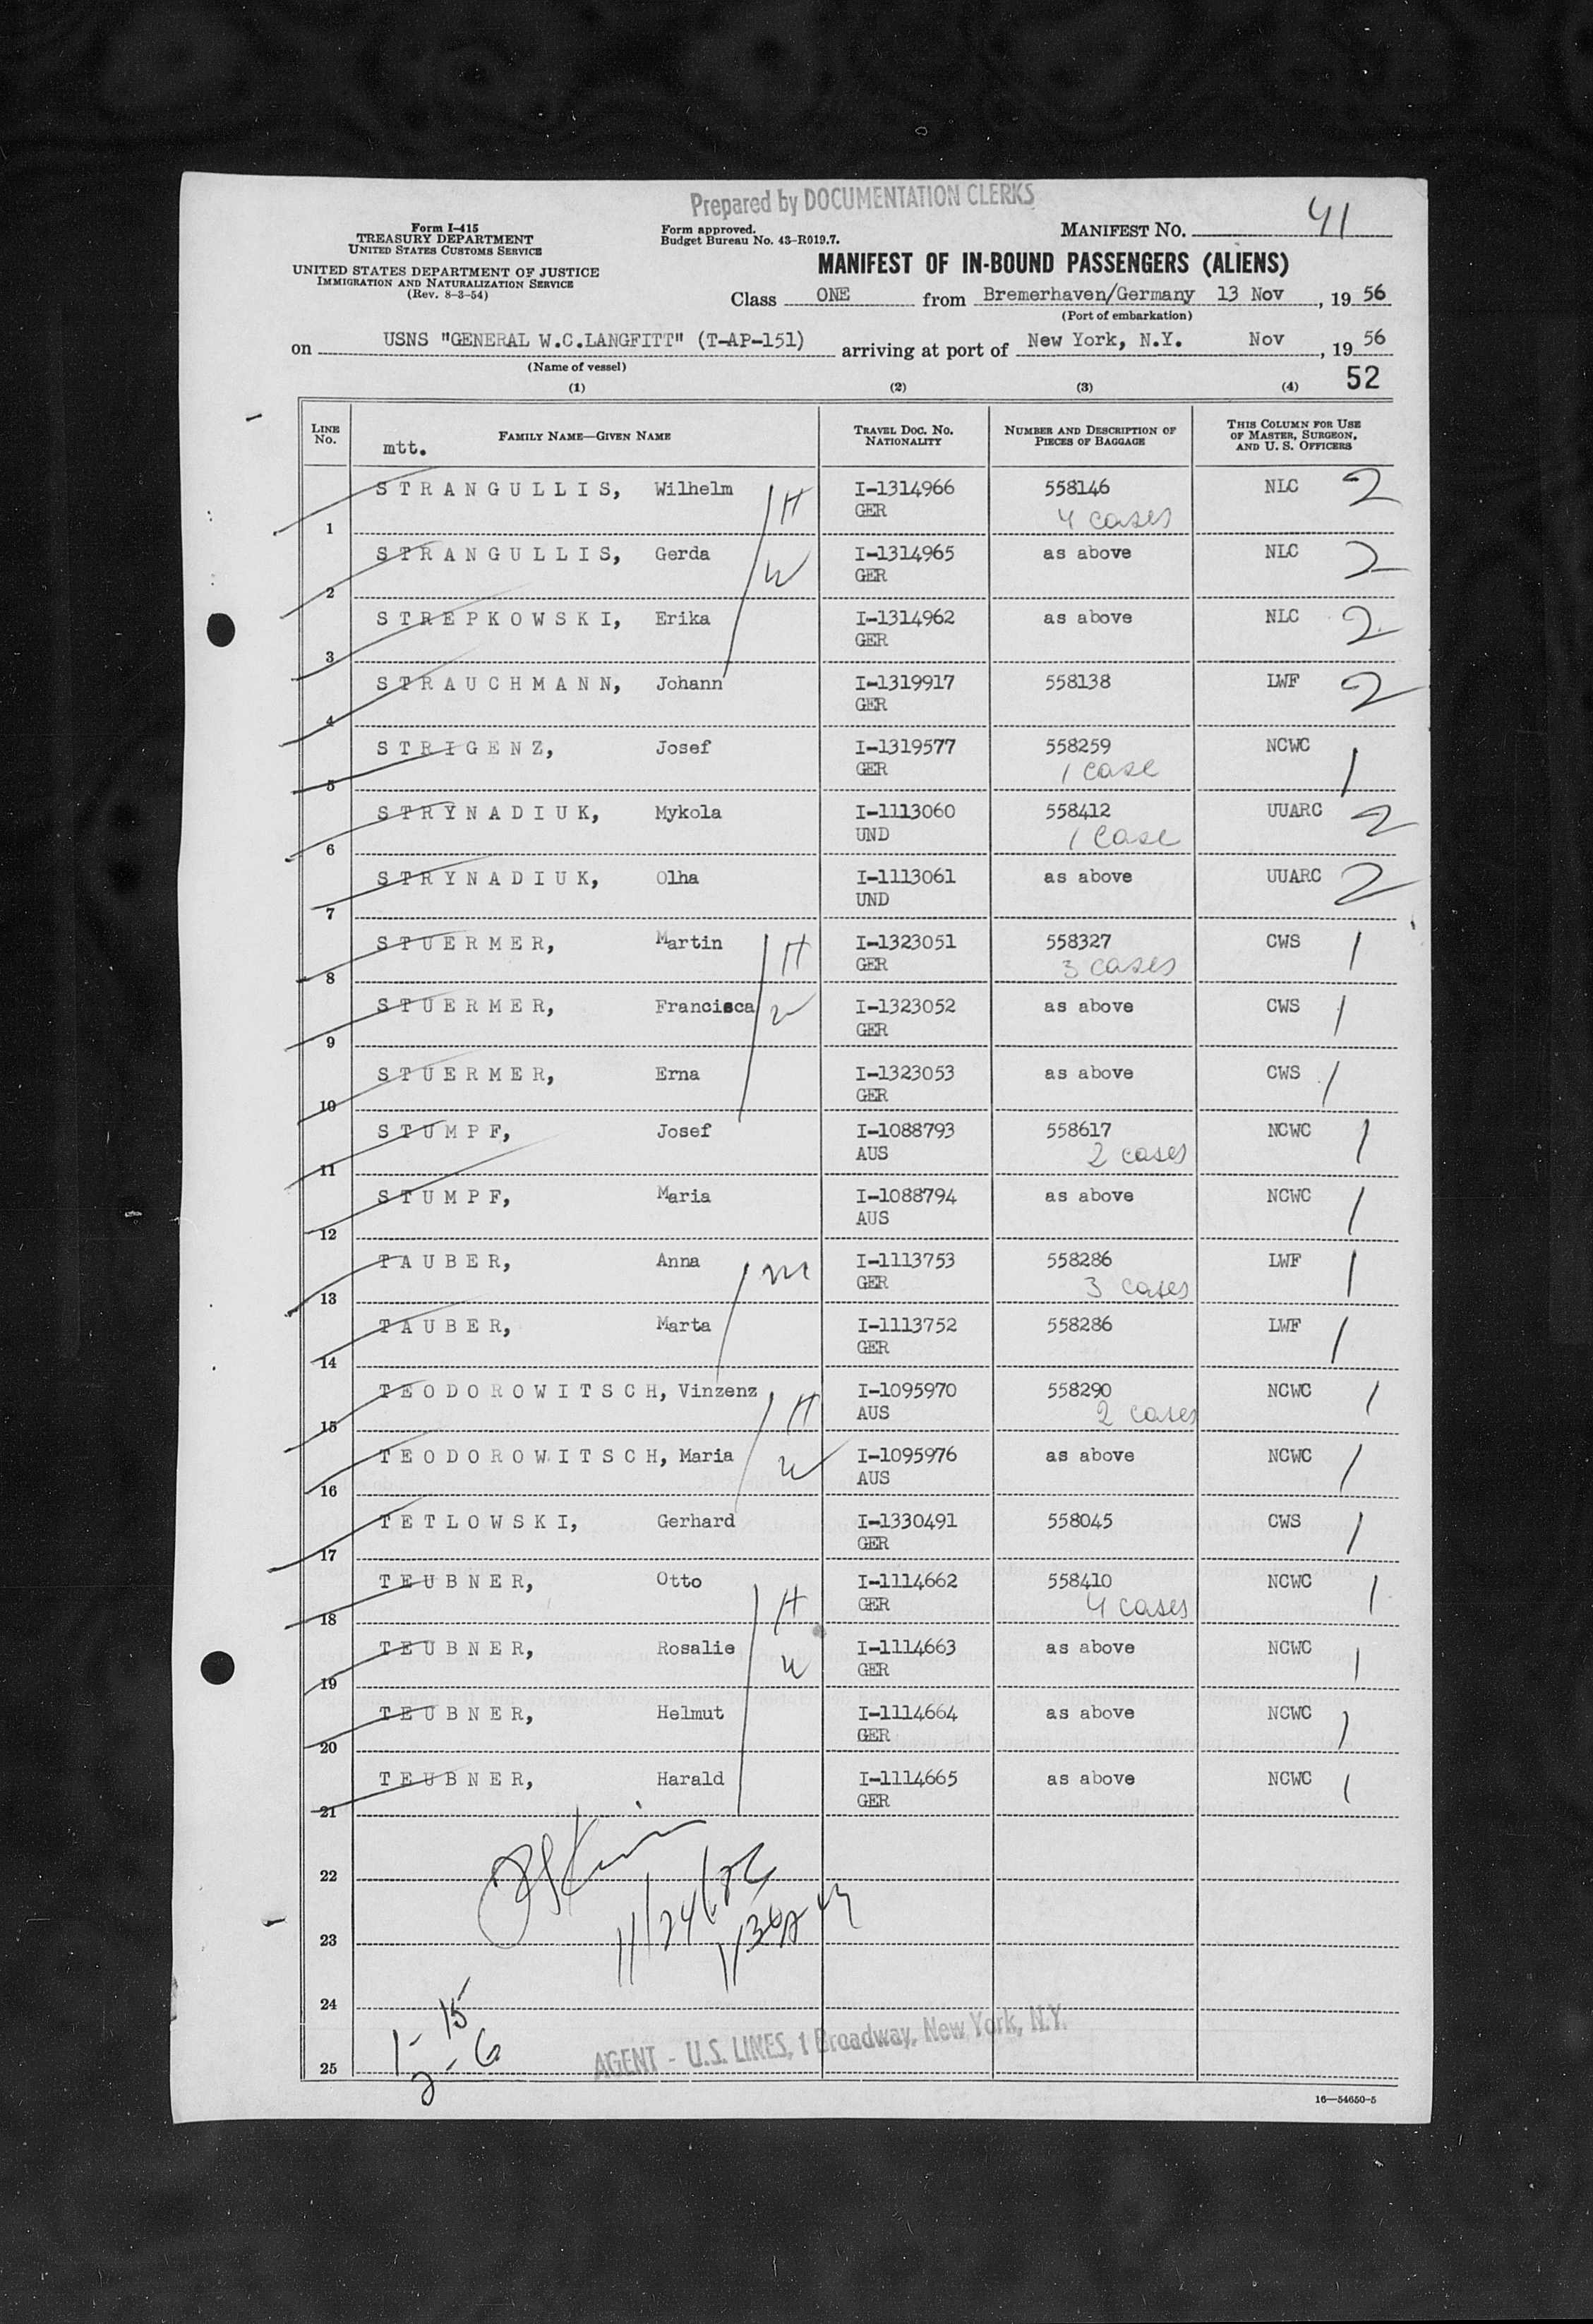 Prepared by DOCUMENTATION CLERKS
Form I-415
TREASURY DEPARTMENT
UNITED STATES CUSTOMS SERVICE
UNITED STATES DEPARTMENT OF JUSTICE
IMMIGRATION AND NATURALIZATION SERVICE
(Rev. 8-3-54)
Form approved.
Budget Bureau No. 43-R019.7.
MANIFEST NO. 41
MANIFEST OF IN-BOUND PASSENGERS (ALIENS)
Class ONE from Bremerhaven/Germany 13 Nov, 19 56
(Port of embarkation)
on USNS "GENERAL W.C.LANGFITT" (T-AP-151) arriving at port of New York, N.Y. Nov, 19 56
(Name of vessel)
(1) (2) (3) (4) 52
LINE No. mtt. FAMILY NAME—GIVEN NAME TRAVEL DOC. NO. NATIONALITY NUMBER AND DESCRIPTION OF PIECES OF BAGGAGE THIS COLUMN FOR USE OF MASTER, SURGEON, AND U. S. OFFICERS
STRANGULLIS, Wilhelm H I-1314966 558146 NLC 2
1 GER 4 cases
STRANGULLIS, Gerda W I-1314965 as above NLC 2
2 GER
STREPKOWSKI, Erika I-1314962 as above NLC 2
3 GER
STRAUCHMANN, Johann I-1319917 558138 LWF 2
4 GER
STRIGENZ, Josef I-1319577 558259 NCWC 1
5 GER 1 case
STRYNADIUK, Mykola I-1113060 558412 UUARC 2
6 UND 1 case
STRYNADIUK, Olha I-1113061 as above UUARC 2
7 UND
STUERMER, Martin H I-1323051 558327 CWS 1
8 GER 3 cases
STUERMER, Francisca W I-1323052 as above CWS 1
9 GER
STUERMER, Erna I-1323053 as above CWS 1
10 GER
STUMPF, Josef I-1088793 558617 NCWC 1
11 AUS 2 cases
STUMPF, Maria I-1088794 as above NCWC 1
12 AUS
TAUBER, Anna M I-1113753 558286 LWF 1
13 GER 3 cases
TAUBER, Marta I-1113752 558286 LWF 1
14 GER
TEODOROWITSCH, Vinzenz H I-1095970 558290 NCWC 1
15 AUS 2 cases
TEODOROWITSCH, Maria W I-1095976 as above NCWC 1
16 AUS
TETLOWSKI, Gerhard I-1330491 558045 CWS 1
17 GER
TEUBNER, Otto H I-1114662 558410 NCWC 1
18 GER 4 cases
TEUBNER, Rosalie W I-1114663 as above NCWC 1
19 GER
TEUBNER, Helmut I-1114664 as above NCWC 1
20 GER
TEUBNER, Harald I-1114665 as above NCWC 1
21 GER
22
23
24
1 - 15
2 - 6
25
AGENT - U.S. LINES, 1 Broadway, New York, N.Y.
16—54650-5